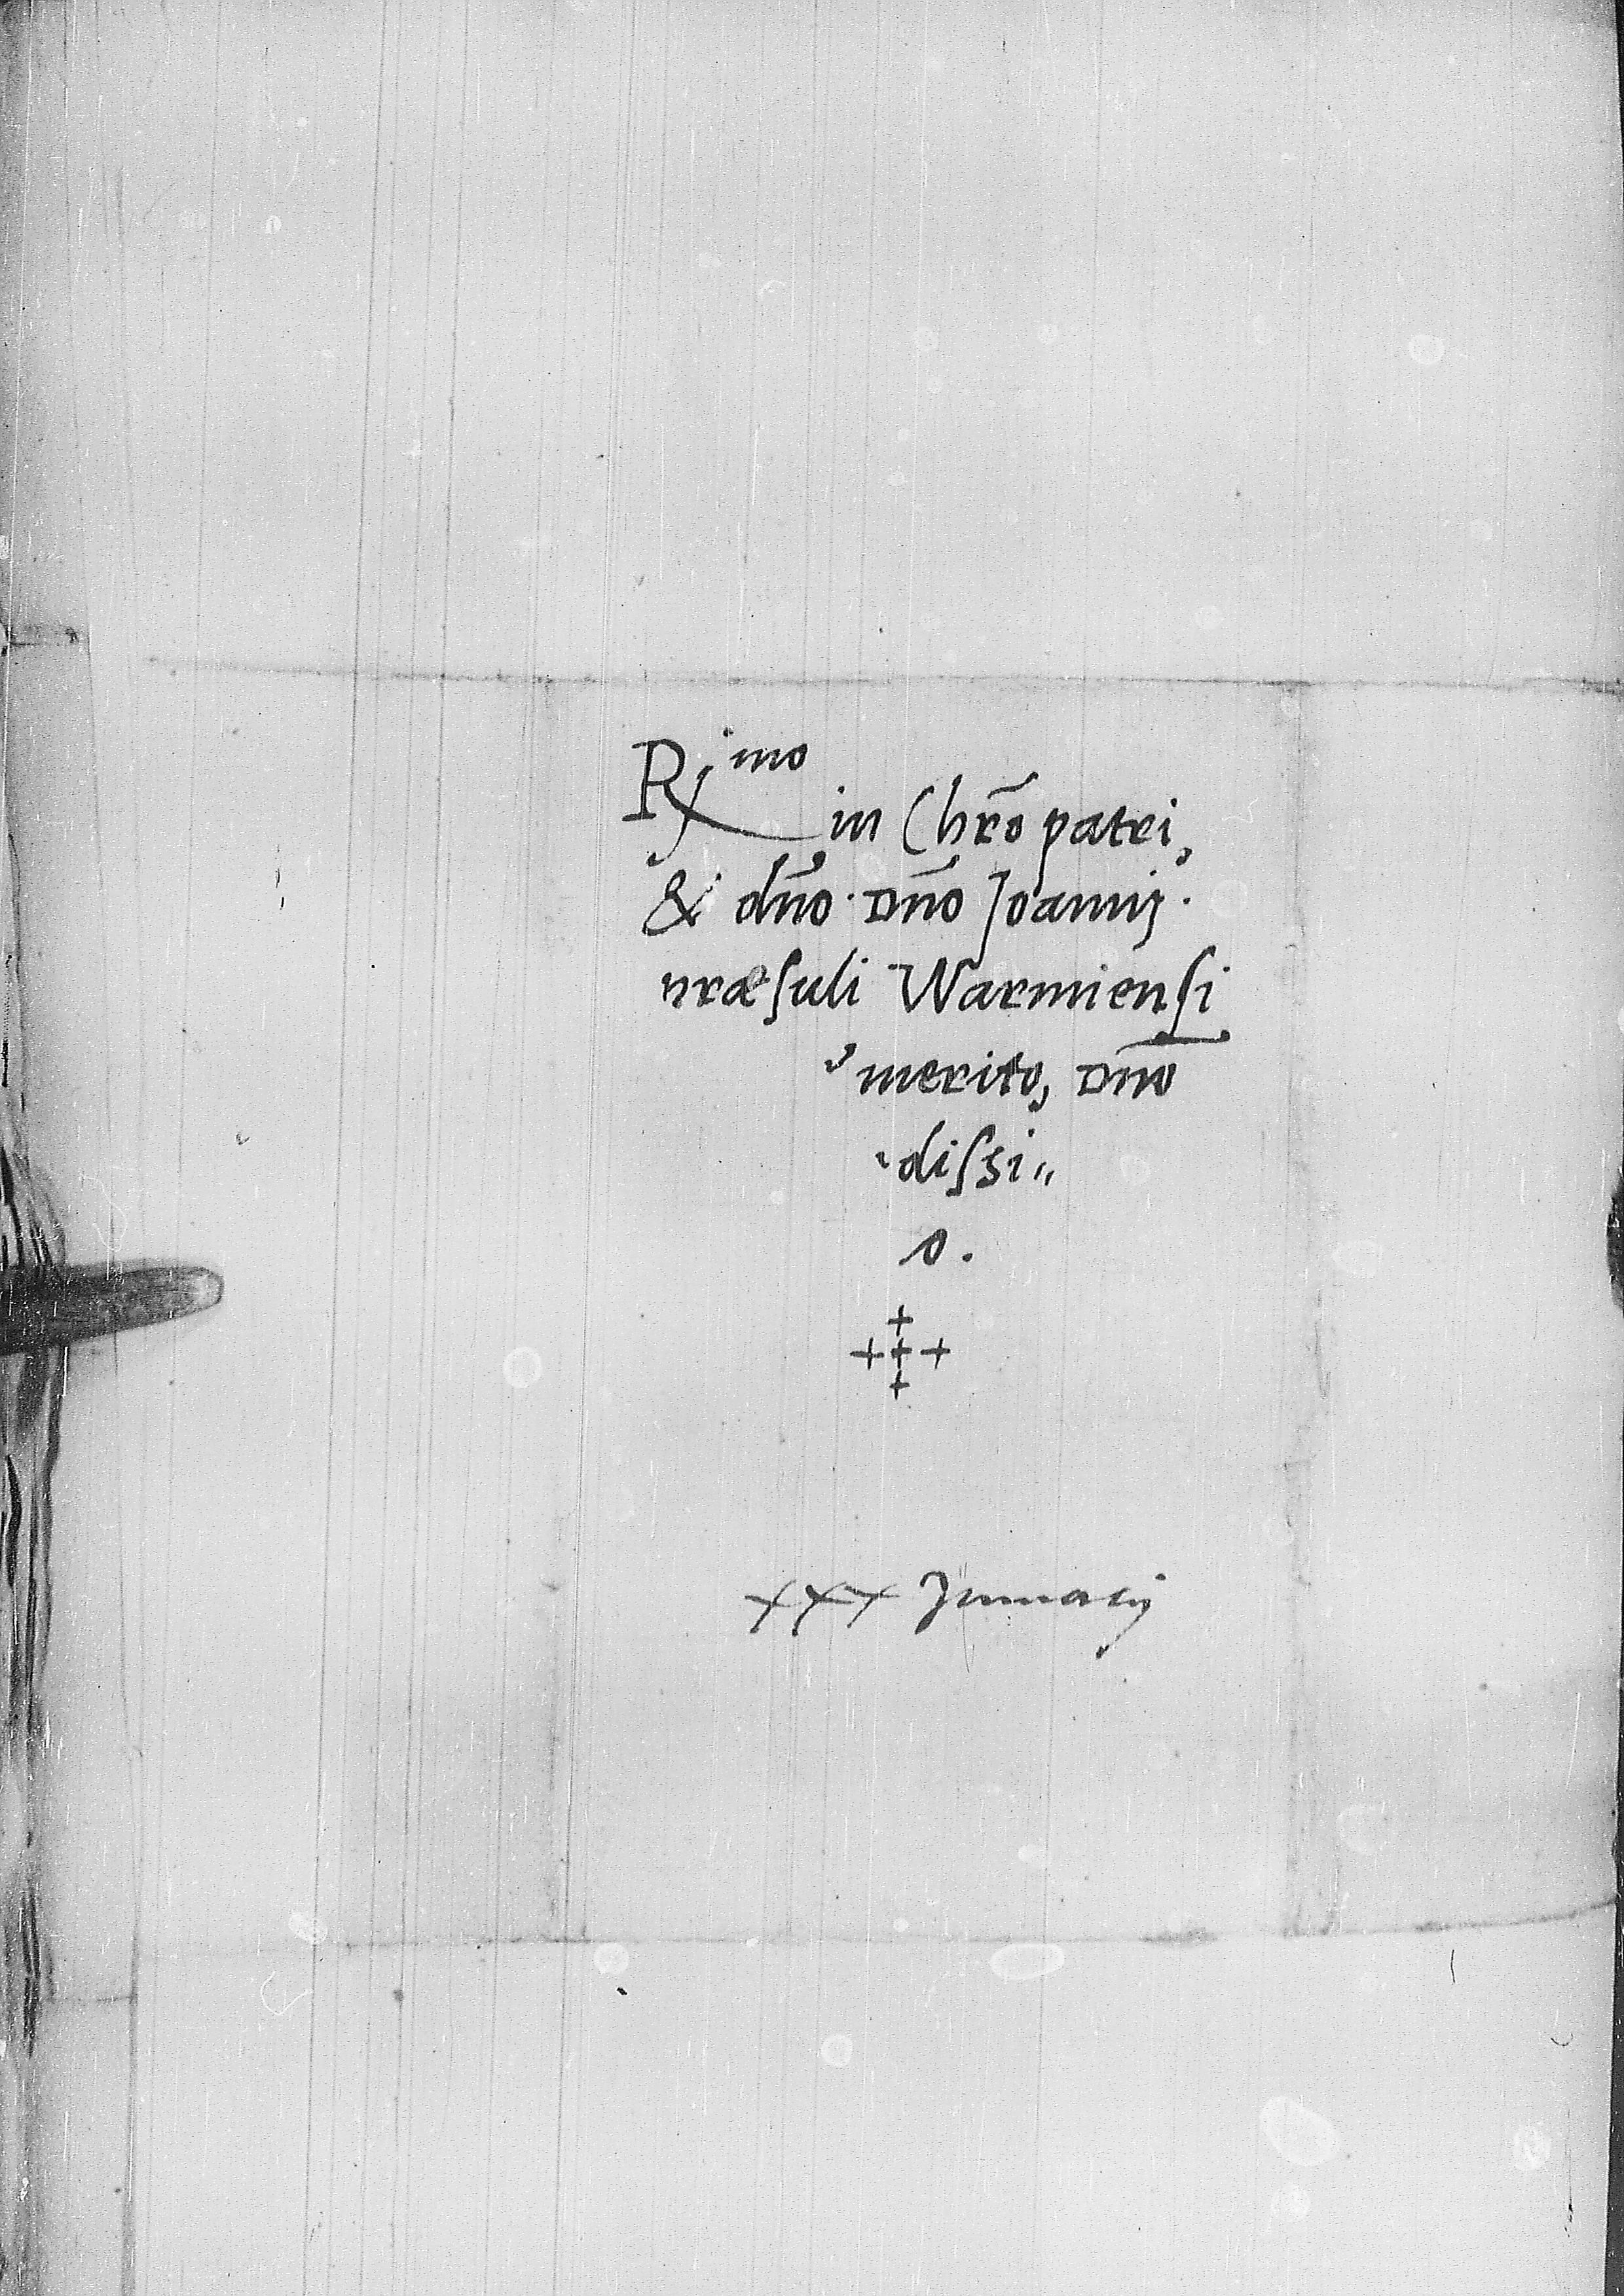 Rimo
in Chr̄o patri,
& dn̄o. Dn̄o Joannij.
præsuli Warmiensi
merito, Dn̄o
dissi„
o.
+
+ + +
+
xxx Januarij